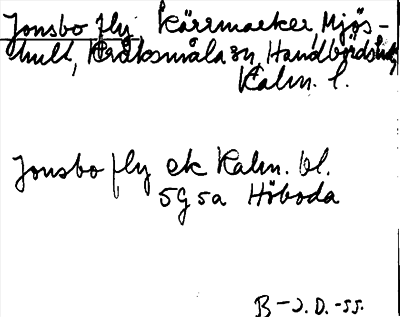 Jonsbo fly, Kärrmarker, Mjös-
hult, Kråksmåla sn, Handbörds hd,
Kalm. l.
Jonsbo fly ek Kalm. bl.
5G 5a Höboda
B-J.D.-55.